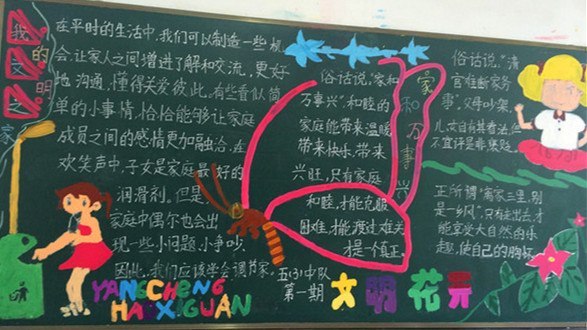 我的文明之家
在平时的生活中,我们可以制造一些机
会,让家人之间增进了解和交流,更好
地沟通,懂得关爱彼此。有些看似简
单的小事情,恰恰能够让家庭
成员之间的感情更加融洽。在
欢笑声中,子女是家庭最好的
润滑剂。但是
家庭中偶尔也会出
现一些小问题,小争吵。
因此,我们应该学会调节家。
YANGCHENG
HAOXIGUAN
五(3)中队
第一期
俗话说,"家和
万事兴",和睦的
家庭能带来温暖
带来快乐,带来
兴旺,只有家庭
和睦,才能克服
困难,才能渡过难关
才是一个真正。
家和万事兴
文明花开
俗话说,"清
官难断家务
事",父母吵架,
儿女自有其看法,但
不宜评是非曲直。
正所谓"离家三里,别
是一乡风",只有走出去,才
能享受大自然的乐
趣,使自己的胸怀